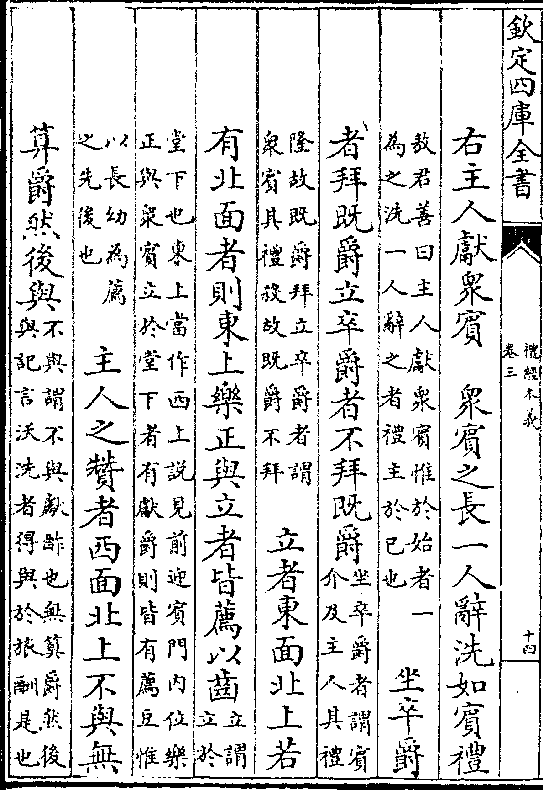 欽定四庫全書
禮經本義
卷三
十四
右主人獻衆賓 衆賓之長一人辭洗如賓禮
敖君善曰主人獻衆賓惟於始者一
為之洗一人辭之者禮主於已也
坐卒爵
者拜既爵立卒爵者不拜既爵
坐卒爵者謂賓
介及主人其禮
隆故既爵拜立卒爵者謂
衆賓其禮殺故既爵不拜
立者東面北上若
有北面者則東上樂正與立者皆薦以齒
立謂
立於
堂下也東上當作西上說見前迎賓門内位樂
正與衆賓立於堂下者有獻爵則皆有薦豆惟
以長幼為薦
之先後也
主人之贊者西面北上不與無
算爵然後與
不與謂不與獻酢也無算爵然後
與記言沃洗者得與於旅酬是也